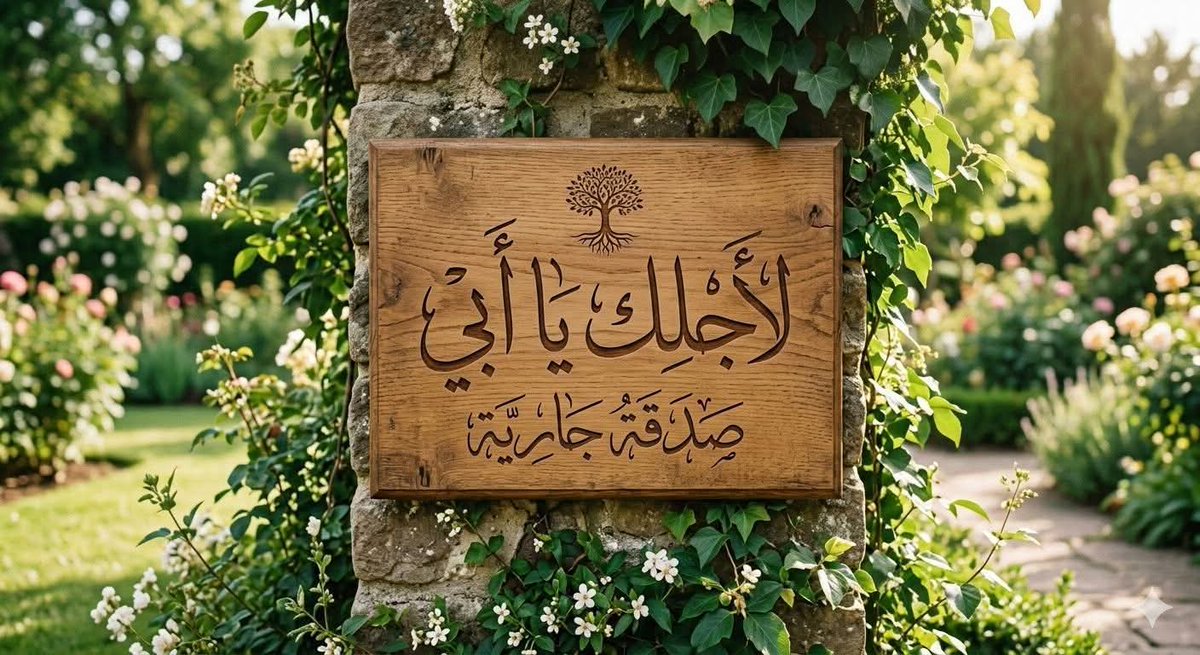 لأَجْلِكَ يَا أَبِي
صَدَقَةٌ جَارِيَّة